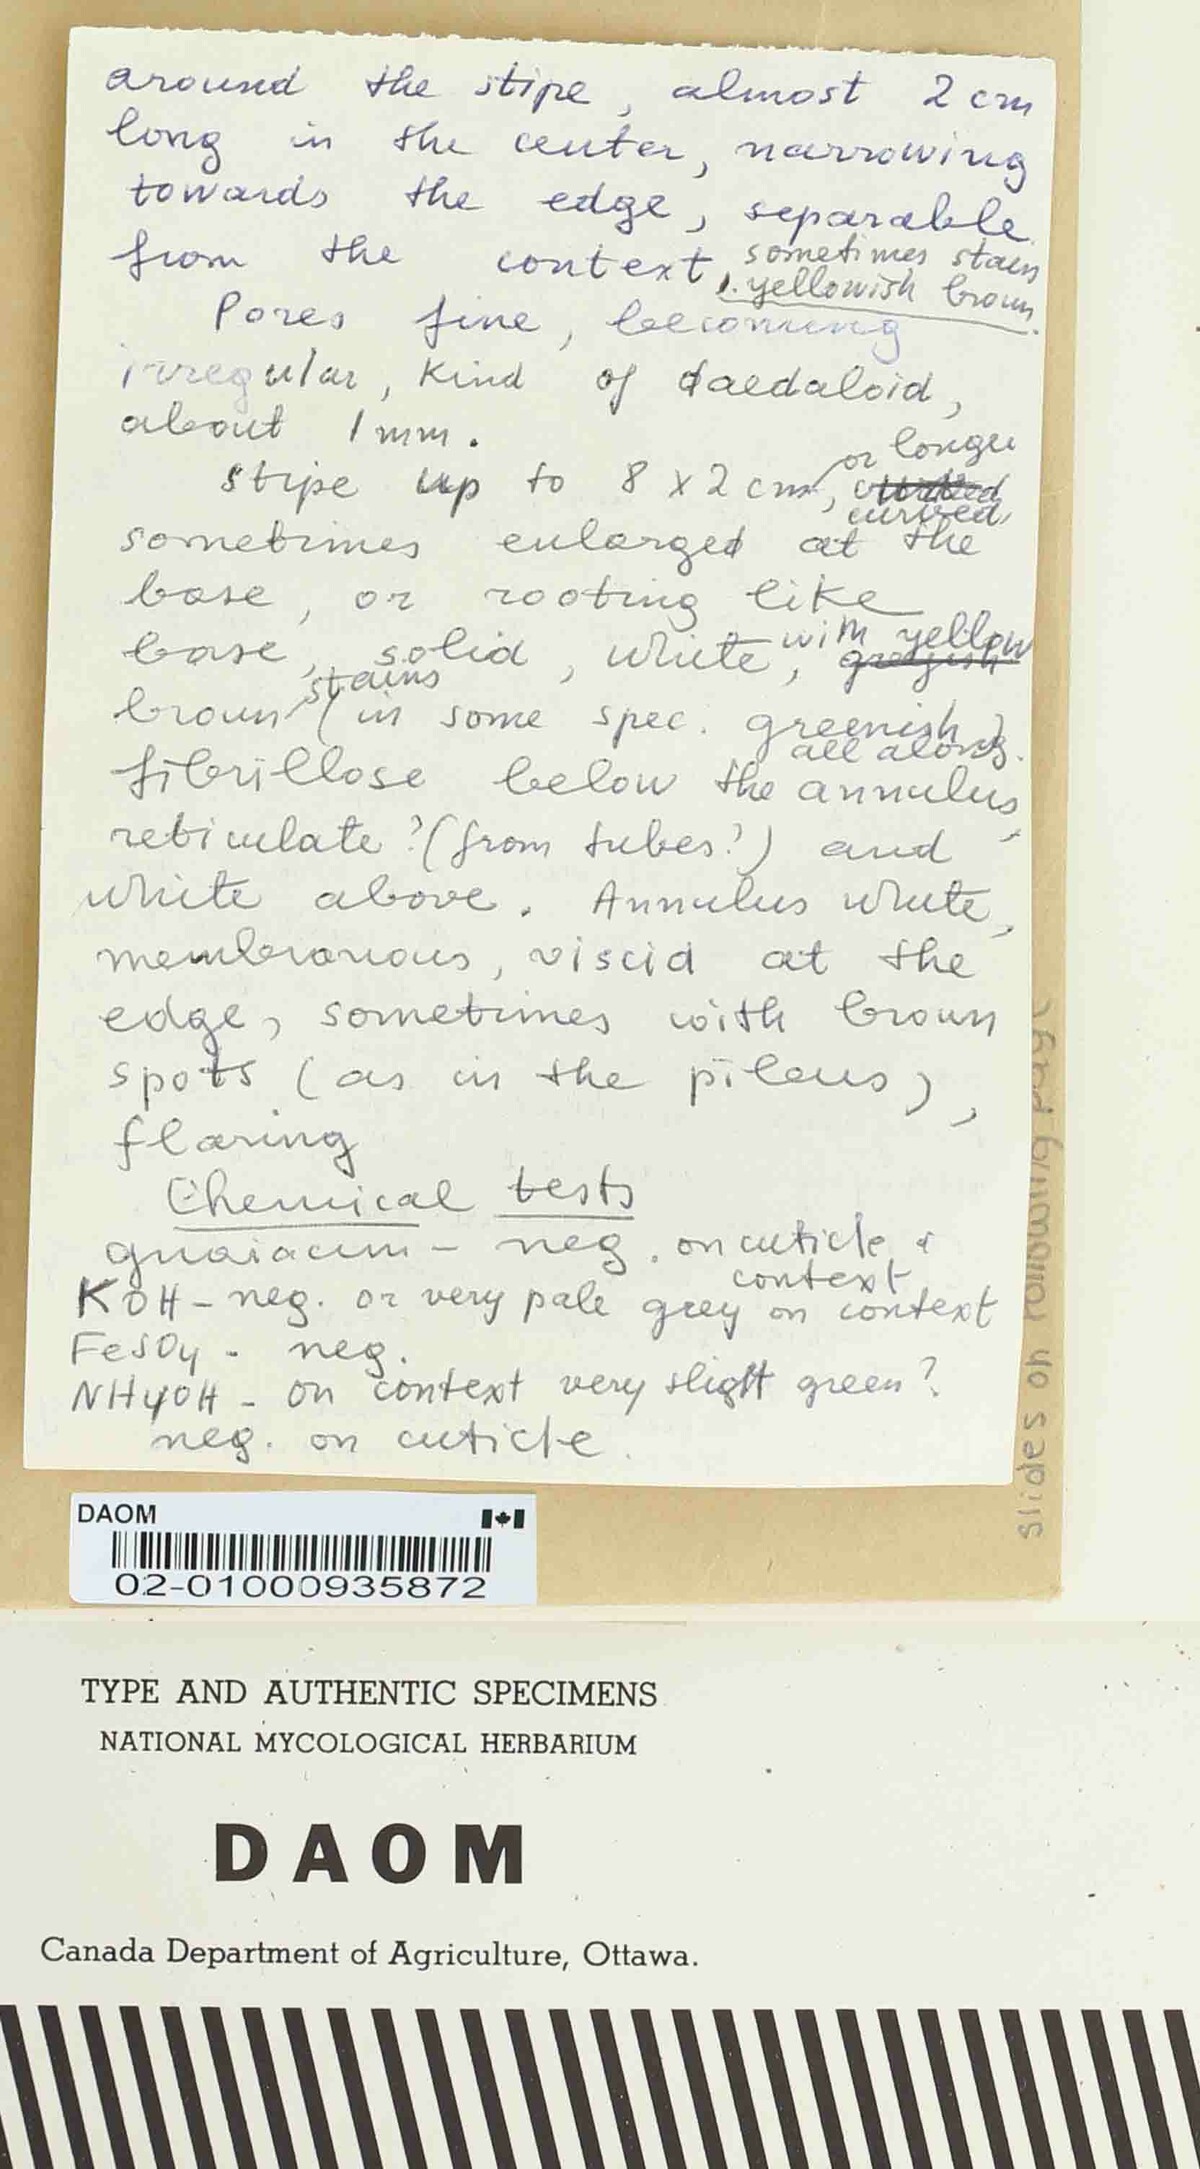 around the stipe, almost 2 cm
long in the center, narrowing
towards the edge, separable
from the context, sometimes stain
yellowish brown.
Pores fine, becoming
irregular, kind of daedaloid,
about 1 mm.
Stipe up to 8 x 2 cm, or longer
curved
sometimes enlarged at the
base, or rooting like
base, solid, white, with yellow
greyish
brown stains (in some spec. greenish)
all along.
fibrillose below the annulus,
reticulate? (from tubes?) and
white above. Annulus white,
membranous, viscid at the
edge, sometimes with brown
spots (as in the pileus),
flaring
Chemical tests
guaiacum - neg. on cuticle &
context
KOH - neg. or very pale grey on context
FeSO4 - neg.
NH4OH - on context very slight green?
neg. on cuticle.
slides on following page
DAOM
02-01000935872
TYPE AND AUTHENTIC SPECIMENS
NATIONAL MYCOLOGICAL HERBARIUM
DAOM
Canada Department of Agriculture, Ottawa.